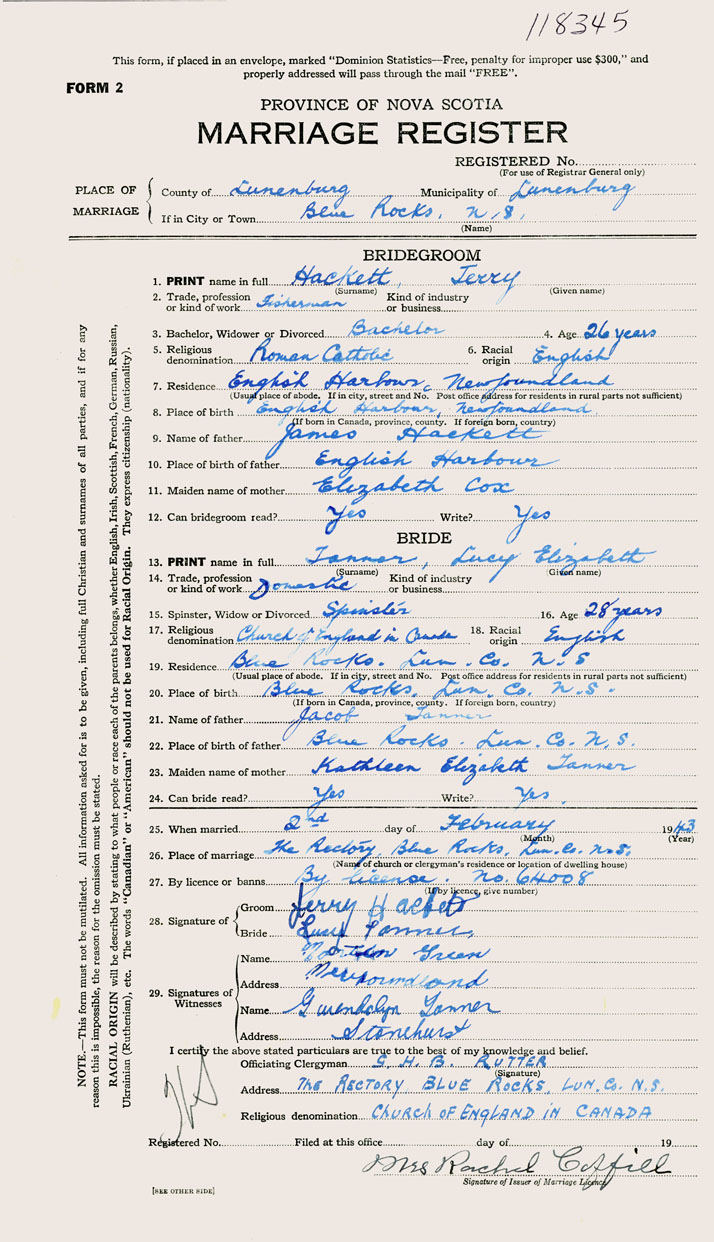 118345
This form, if placed in an envelope, marked "Dominion Statistics—Free, penalty for improper use $300," and
properly addressed will pass through the mail "FREE".
FORM 2
PROVINCE OF NOVA SCOTIA
MARRIAGE REGISTER
REGISTERED No.
(For use of Registrar General only)
PLACE OF MARRIAGE
County of Lunenburg Municipality of Lunenburg
If in City or Town Blue Rocks, N.S.
(Name)
BRIDEGROOM
1. PRINT name in full Hackett, Jerry
(Surname) (Given name)
2. Trade, profession or kind of work Fisherman Kind of industry or business
3. Bachelor, Widower or Divorced Bachelor 4. Age 26 years
5. Religious denomination Roman Catholic 6. Racial origin English
7. Residence English Harbour, Newfoundland
(Usual place of abode. If in city, street and No. Post office address for residents in rural parts not sufficient)
8. Place of birth English Harbour, Newfoundland
(If born in Canada, province, county. If foreign born, country)
9. Name of father James Hackett
10. Place of birth of father English Harbour
11. Maiden name of mother Elizabeth Cox
12. Can bridegroom read? Yes Write? Yes
BRIDE
13. PRINT name in full Tanner, Lucy Elizabeth
(Surname) (Given name)
14. Trade, profession or kind of work Domestic Kind of industry or business
15. Spinster, Widow or Divorced Spinster 16. Age 28 years
17. Religious denomination Church of England in Canada 18. Racial origin English
19. Residence Blue Rocks. Lun. Co. N.S
(Usual place of abode. If in city, street and No. Post office address for residents in rural parts not sufficient)
20. Place of birth Blue Rocks, Lun. Co. N.S.
(If born in Canada, province, county. If foreign born, country)
21. Name of father Jacob Tanner
22. Place of birth of father Blue Rocks. Lun. Co. N.S.
23. Maiden name of mother Kathleen Elizabeth Tanner
24. Can bride read? Yes Write? Yes
25. When married 2nd day of February 1943
(Month) (Year)
26. Place of marriage The Rectory, Blue Rocks, Lun. Co. N.S.
(Name of church or clergyman's residence or location of dwelling house)
27. By licence or banns By license. No. 64008
(If by licence, give number)
28. Signature of
Groom Jerry Hackett
Bride Lucy Tanner
29. Signatures of Witnesses
Name Green
Address Newfoundland
Name Gwendolyn Tanner
Address Stonehurst
I certify the above stated particulars are true to the best of my knowledge and belief.
Officiating Clergyman S. H. B. RUTTER
(Signature)
Address THE RECTORY BLUE ROCKS, LUN. Co. N.S.
Religious denomination CHURCH OF ENGLAND IN CANADA
Registered No. Filed at this office day of 19
Mrs Rachel Coffill
Signature of Issuer of Marriage Licence
[SEE OTHER SIDE]
NOTE.—This form must not be mutilated. All information asked for is to be given, including full Christian and surnames of all parties, and if for any
reason this is impossible, the reason for the omission must be stated.
RACIAL ORIGIN will be described by stating to what people or race each of the parents belongs, whether English, Irish, Scottish, French, German, Russian,
Ukrainian (Ruthenian), etc. The words "Canadian" or "American" should not be used for Racial Origin. They express citizenship (nationality).